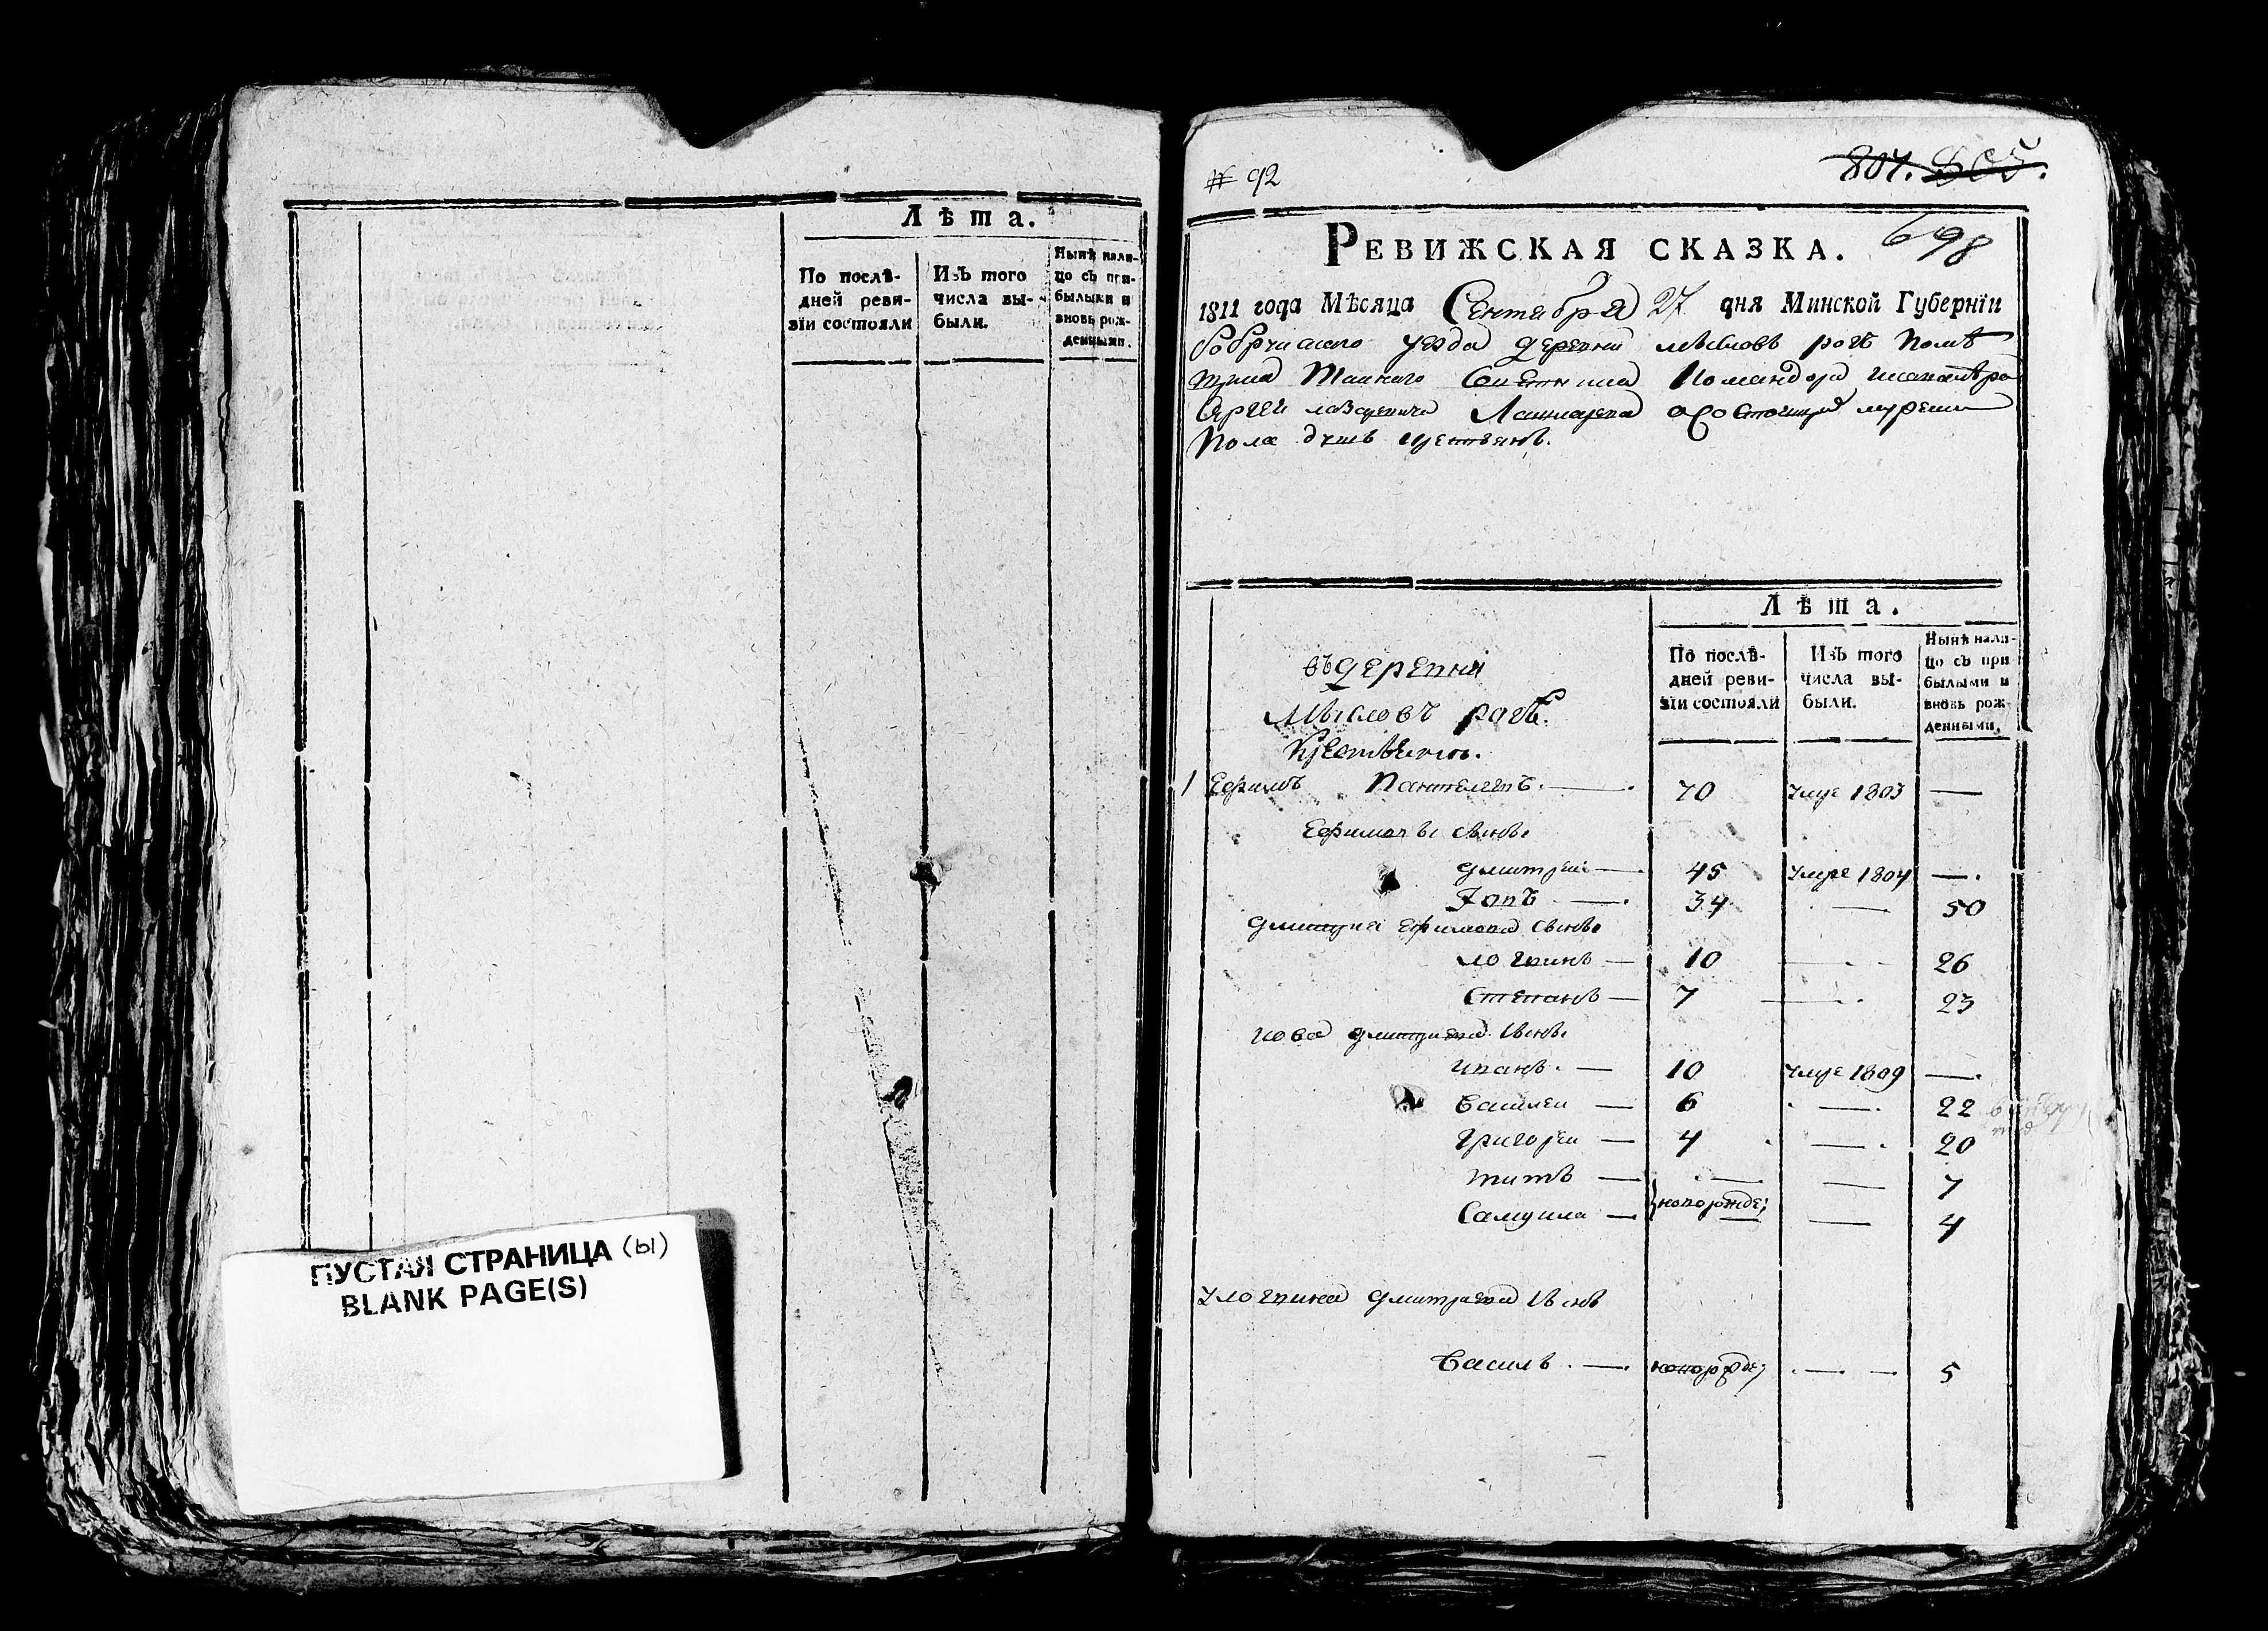 Лѣта.
По послѣ-
дней реви-
зіи состояли
Изъ того
числа вы-
были.
Нынѣ нали-
цо съ при-
былыми и
вновь рож-
денными.
ПУСТАЯ СТРАНИЦА (ы)
BLANK PAGE(S)
№ 92
807. 805.
698
РЕВИЖСКАЯ СКАЗКА.
1811 года Мѣсяца Сентабра 27 дня Минской Губерніи
уезда деревни Мысловъ рогъ помѣ
Тайнаго Советника Командора
Сергея Лазаревича Ланскаго о состоящихъ мужеска
пола душъ крестьянъ.
Лѣта.
По послѣ-
дней реви-
зіи состояли
Изъ того
числа вы-
были.
Нынѣ нали-
цо съ при
былыми и
вновь рож-
денными.
въ деревни
Мысловъ рогъ.
Крестьянъ.
1 Ефимъ Пантелеевъ. — 70 умре 1803 —
Ефимовы сыновья
Дмитрей — 45 умре 1804 —
Іовъ — 34 — 50
Дмитрея Ефимова сыновья
Логвинъ — 10 — 26
Степанъ — 7 — 23
Иова сыновья
Иванъ — 10 умре 1809 —
Василей — 6 — 22
Григорей — 4 — 20
Титъ — — 7
Самуила — новорожде: — 4
У Логвина Дмитриева сынъ
Василь — новорожде: — 5